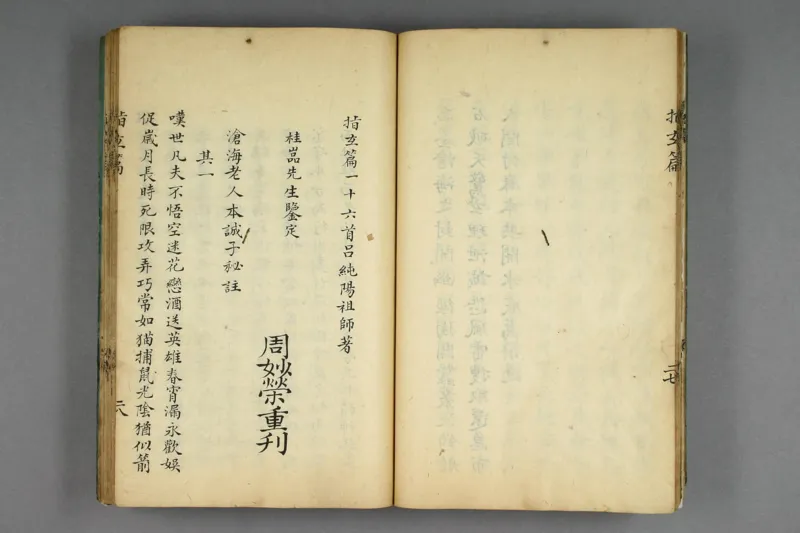 指玄篇
二七
指玄篇一十六首呂純陽祖師著
桂嵓先生鑒定
滄海老人本誠子秘註
周妙榮重刊
其一
嘆世凡夫不悟空迷花戀酒送英雄春宵漏永歡娛
促歲月長時死限攻弄巧常如猫捕鼠光陰猶似箭
指玄篇
二八